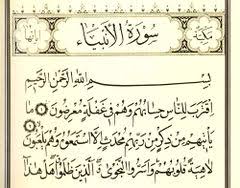 سورة الأنبياء
مكية
آياتها
بسم الله الرحمن الرحيم
اقترب للناس حسابهم وهم في غفلة معرضون ١ ما
يأتيهم من ذكر من ربهم محدث إلا استمعوه وهم يلعبون ٢
لاهية قلوبهم وأسروا النجوى الذين ظلموا هل هذا